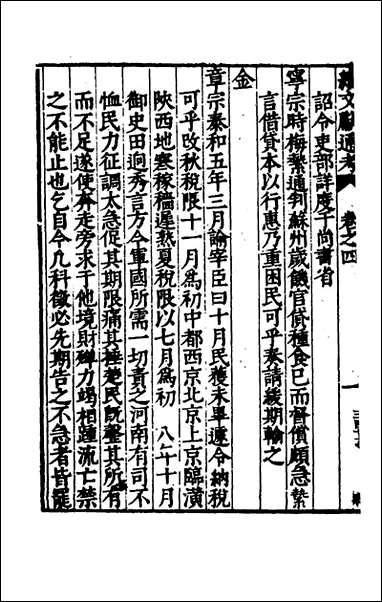 續文獻通考 卷之四
詔令吏部詳度于尚書省
寧宗時梅縶通判蘇州歲饑官貸種食已而督償頗急縶
言借貸本以行惠乃重困民可乎奏請緩期輸之
金
章宗泰和五年三月諭宰臣曰十月民穫未畢遽令納稅
可乎改秋稅限十一月爲初中都西京北京上京臨潢
陝西地寒稼穡遲熟夏稅限以七月爲初 八年十月
御史田迥秀言方今軍國所需一切責之河南有司不
恤民力征調太急促其期限痛其捶楚民既罄其所有
而不足遂使奔走旁求于他境財殫力竭相踵流亡禁
之不能止也乞自今凡科徵必先期告之不急者皆罷